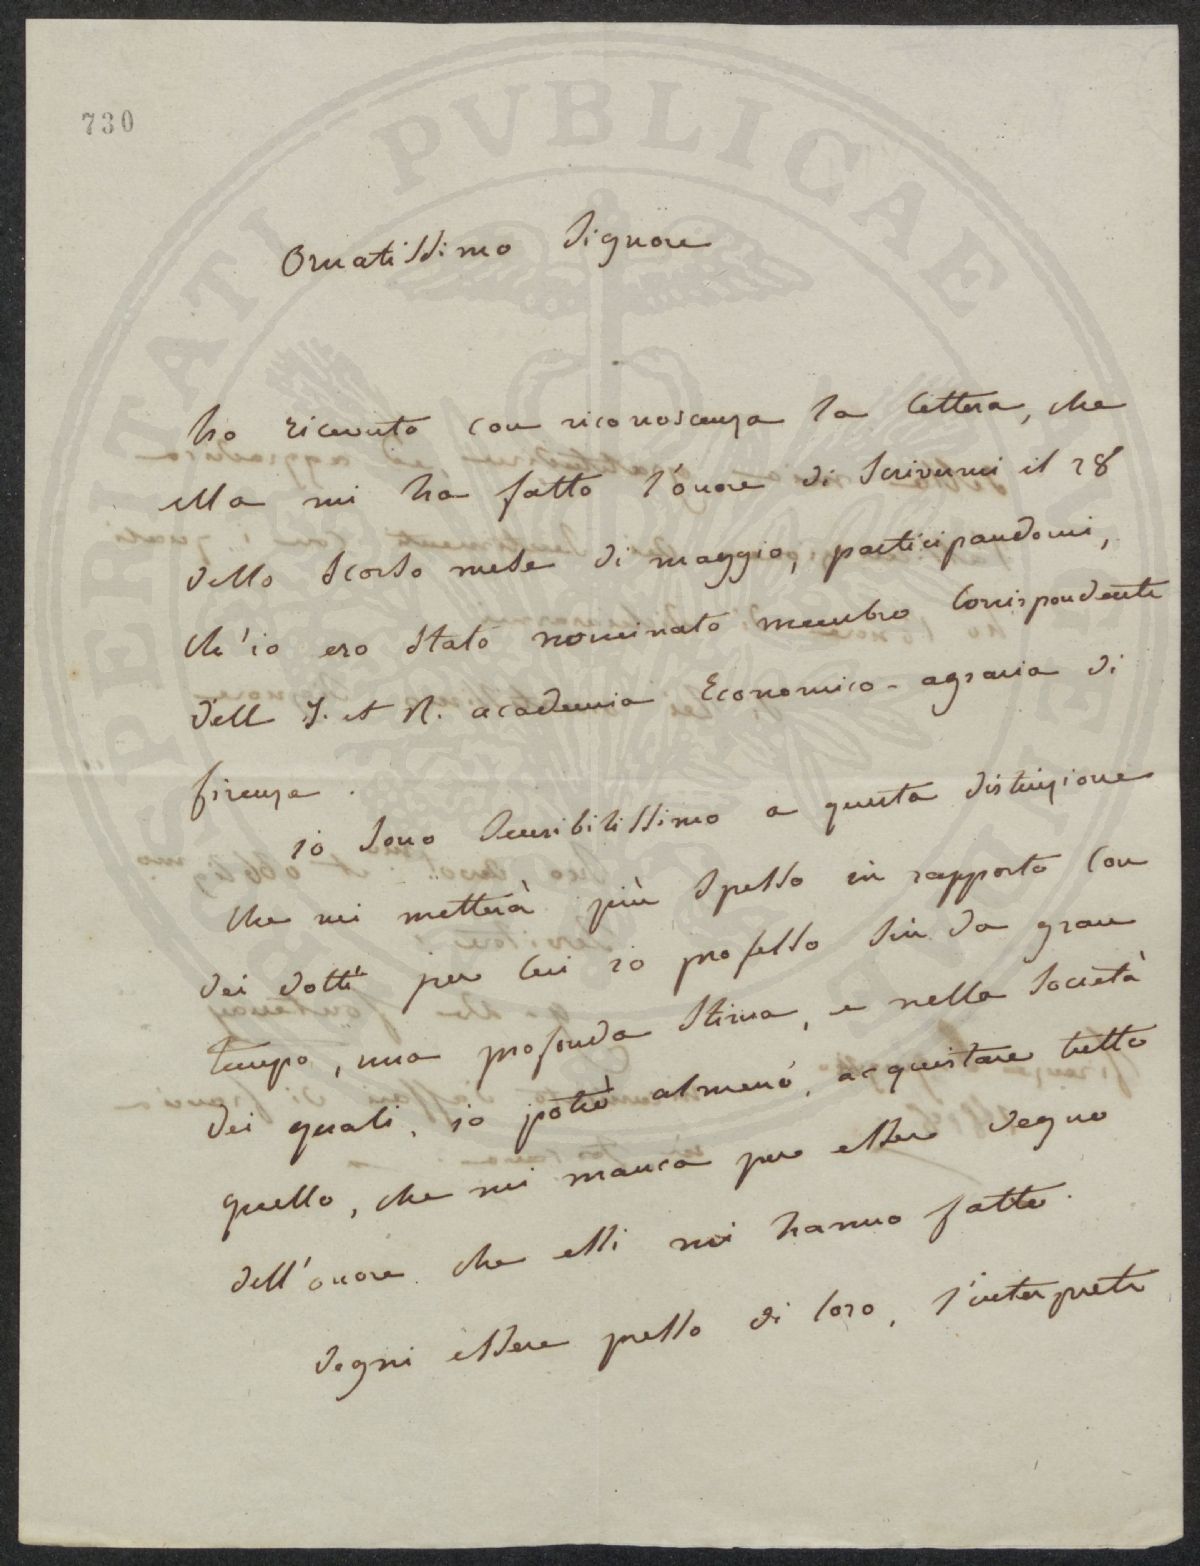 730
Ornatissimo Signore
ho ricevuto con riconoscenza la lettera, che
ella mi ha fatto l'onore di Scrivermi il 28
dello Scorso mese di maggio, participandomi,
ch'io ero Stato nominato membro Corrispondente
dell I. et R. academia Economico-agraria di
firenze.
io Sono Sensibilissimo a questa distinzione
che mi metterà più Spesso in rapporto Con
dei dotti per Cui io professo Sin da gran
tempo, una profonda Stima, e nella Società
dei quali, io potrò almeno, acquistare tutto
quello, che mi manca per essere degno
dell'onore che essi mi hanno fatto.
degni essere presso di loro, l'interprete